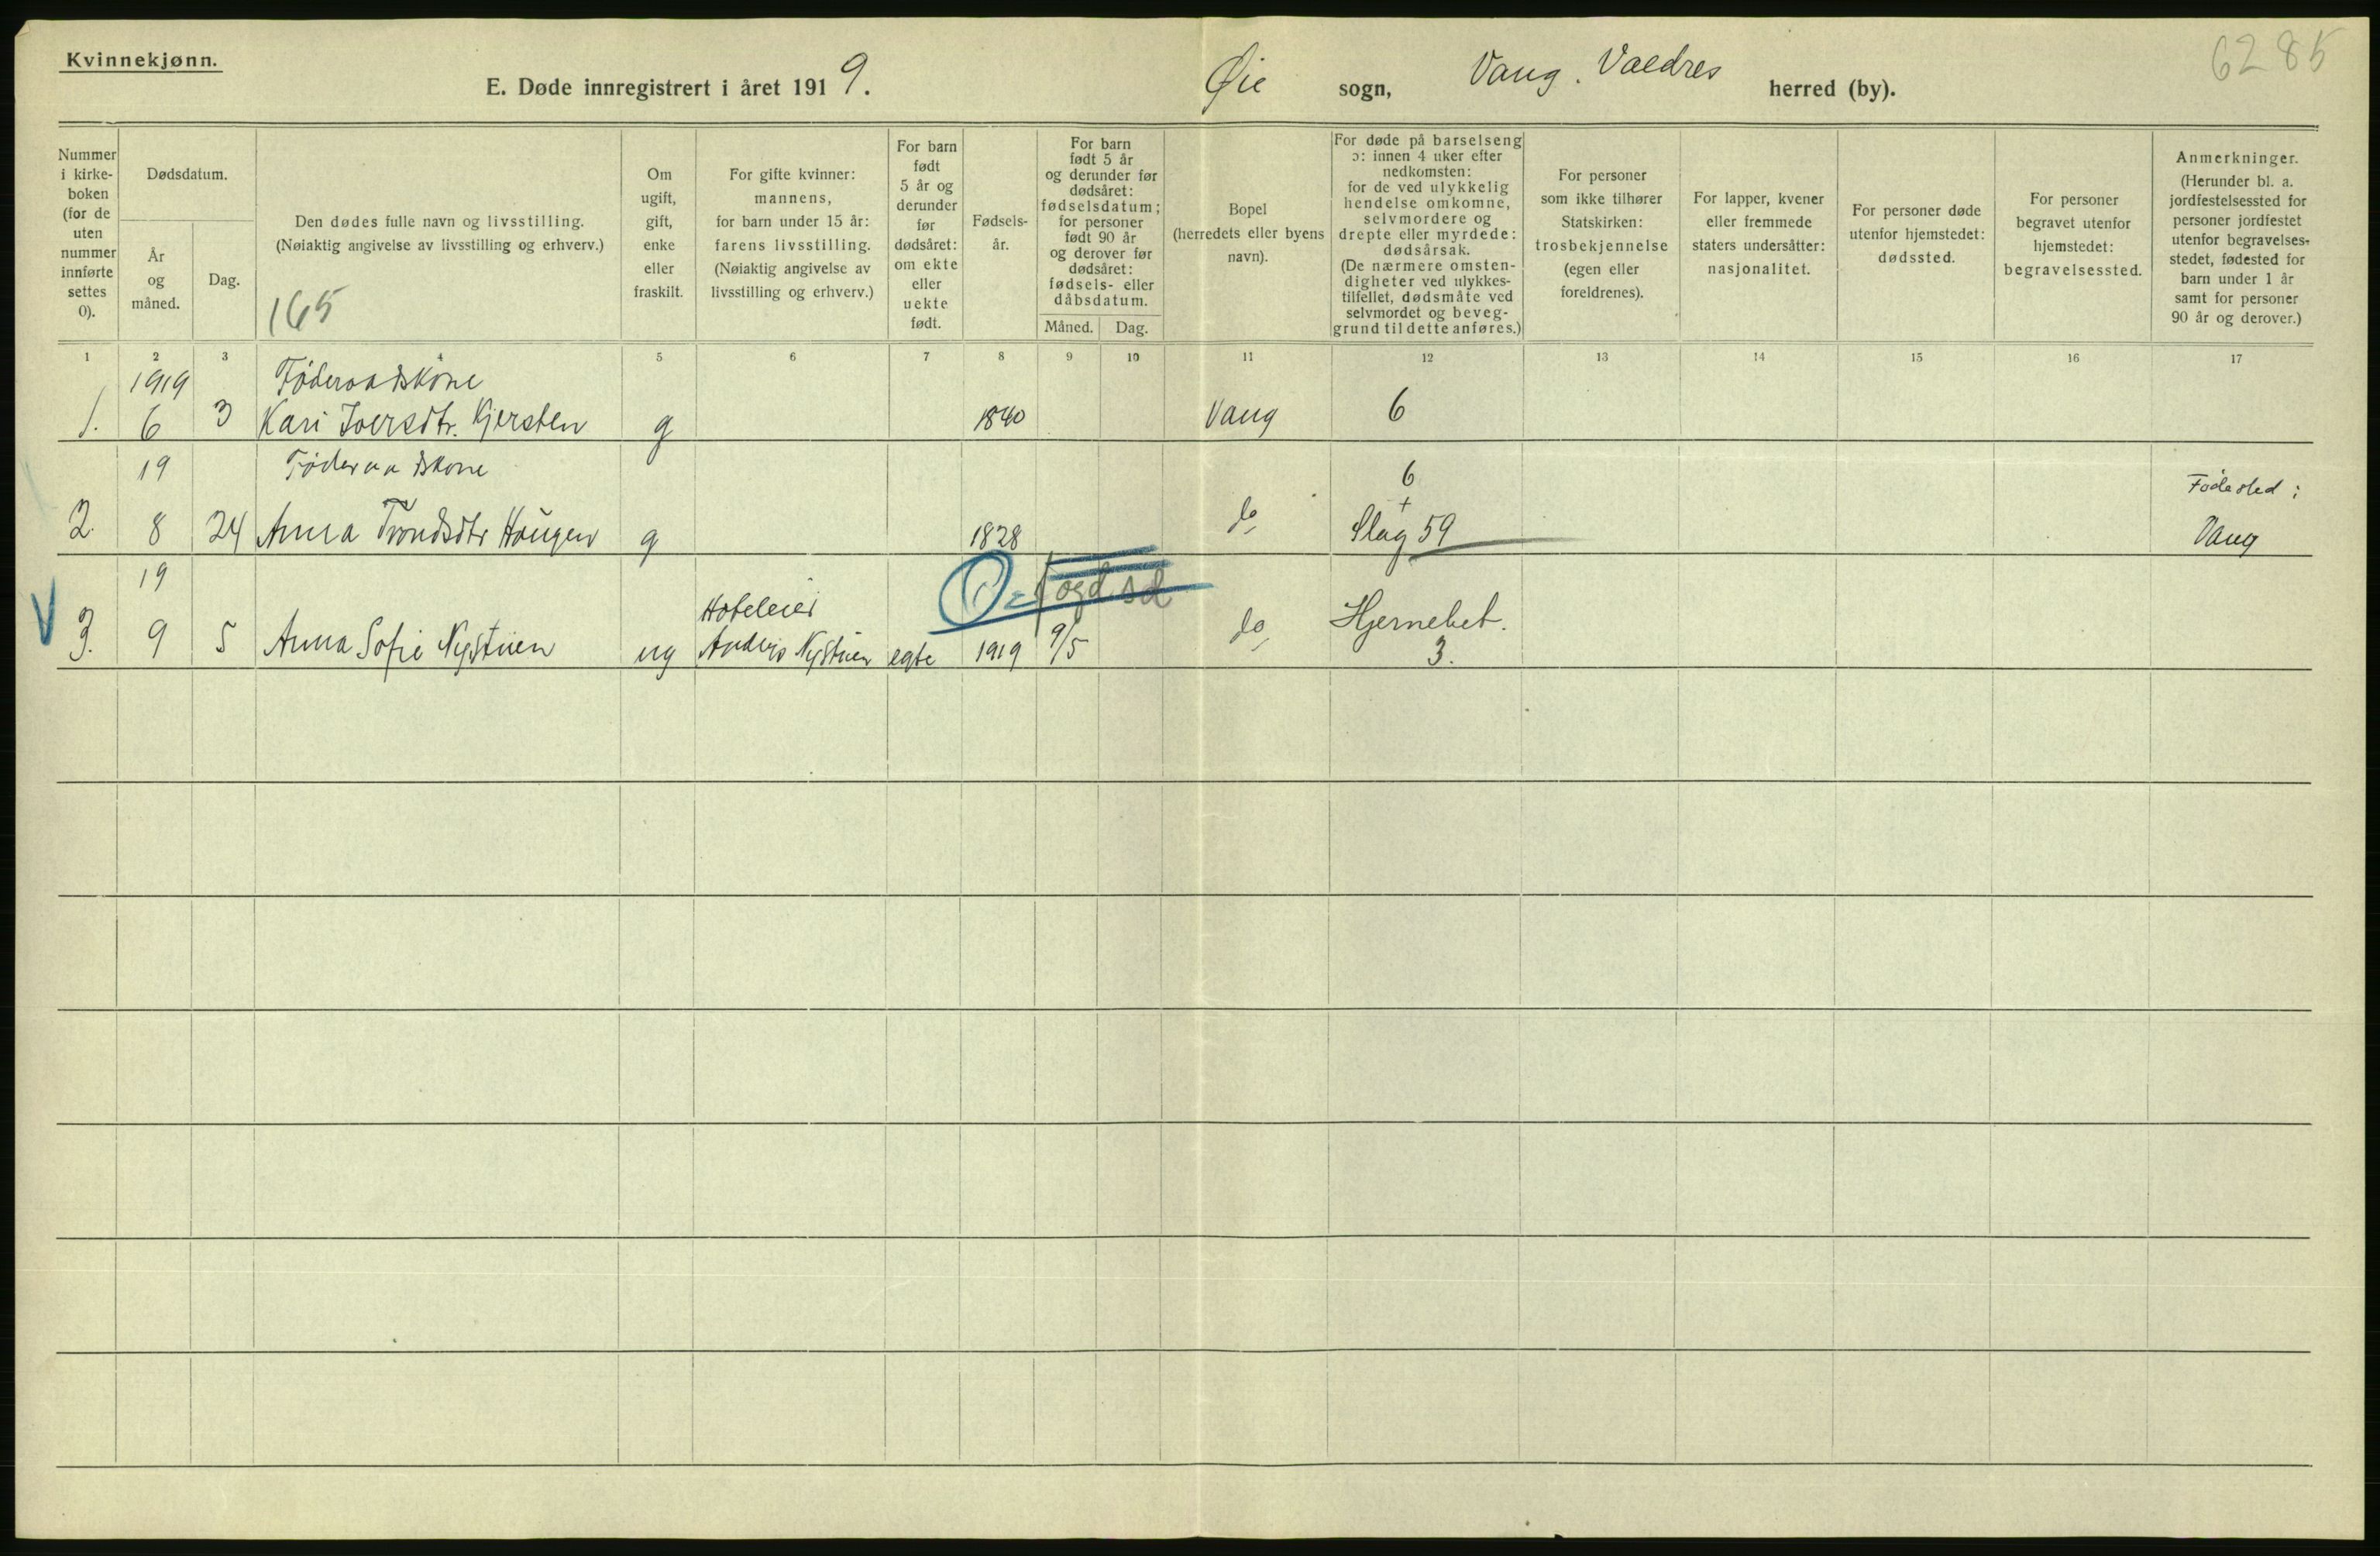 Kvinnekjønn.
6285
E. Døde innregistrert i året 1919.
Øie sogn, Vang. Valdres herred (by).
Nummer i kirke-boken (for de uten nummer innførte settes 0).
Dødsdatum.
År og måned.
Dag.
Den dødes fulle navn og livsstilling.
(Nøiaktig angivelse av livsstilling og erhverv.)
165
Om ugift, gift, enke eller fraskilt.
For gifte kvinner: mannens, for barn under 15 år: farens livsstilling. (Nøiaktig angivelse av livsstilling og erhverv.)
For barn født 5 år og derunder før dødsåret: om ekte eller uekte født.
Fødsels-år.
For barn født 5 år og derunder før dødsåret: fødselsdatum; for personer født 90 år og derover før dødsåret: fødsels- eller dåbsdatum.
Måned.
Dag.
Bopel (herredets eller byens navn).
For døde på barselseng ɔ: innen 4 uker efter nedkomsten: for de ved ulykkelig hendelse omkomne, selvmordere og drepte eller myrdede: dødsårsak. (De nærmere omsten-digheter ved ulykkes-tilfellet, dødsmåte ved selvmordet og beveg-grund til dette anføres.)
For personer som ikke tilhører Statskirken: trosbekjennelse (egen eller foreldrenes).
For lapper, kvener eller fremmede staters undersåtter: nasjonalitet.
For personer døde utenfor hjemstedet: dødssted.
For personer begravet utenfor hjemstedet: begravelsessted.
Anmerkninger. (Herunder bl. a. jordfestelsessted for personer jordfestet utenfor begravelses-stedet, fødested for barn under 1 år samt for personer 90 år og derover.)
1 2 3 4 5 6 7 8 9 10 11 12 13 14 15 16 17
1919 Föderaadskone
1. 6 3 Kari Iversdtr. Kjersten g 1840 Vang 6
19 Föderaadskone 6 Fødested:
+
2. 8 24 Anna Trondsdtr Haugen g 1828 do Slag 59 Vang
19
Hoteleier
3. 9 5 Anna Sofie Nystuen ug Anders Nystuen egte 1919 9/5 do Hjernebet.
3.